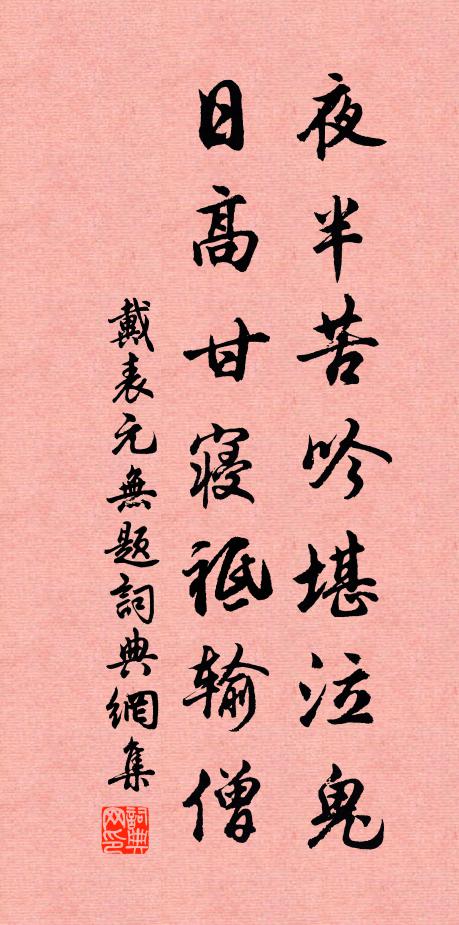 夜半苦吟堪泣鬼
日高甘寝祗输僧
戴表元無题詞典網集
詞典網印